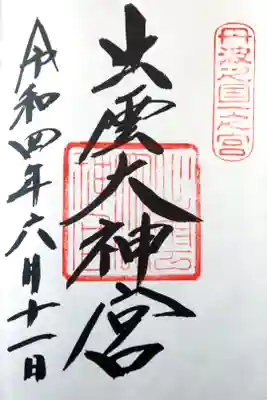 丹波國一之宮
出雲大神宮
令和四年六月十一日